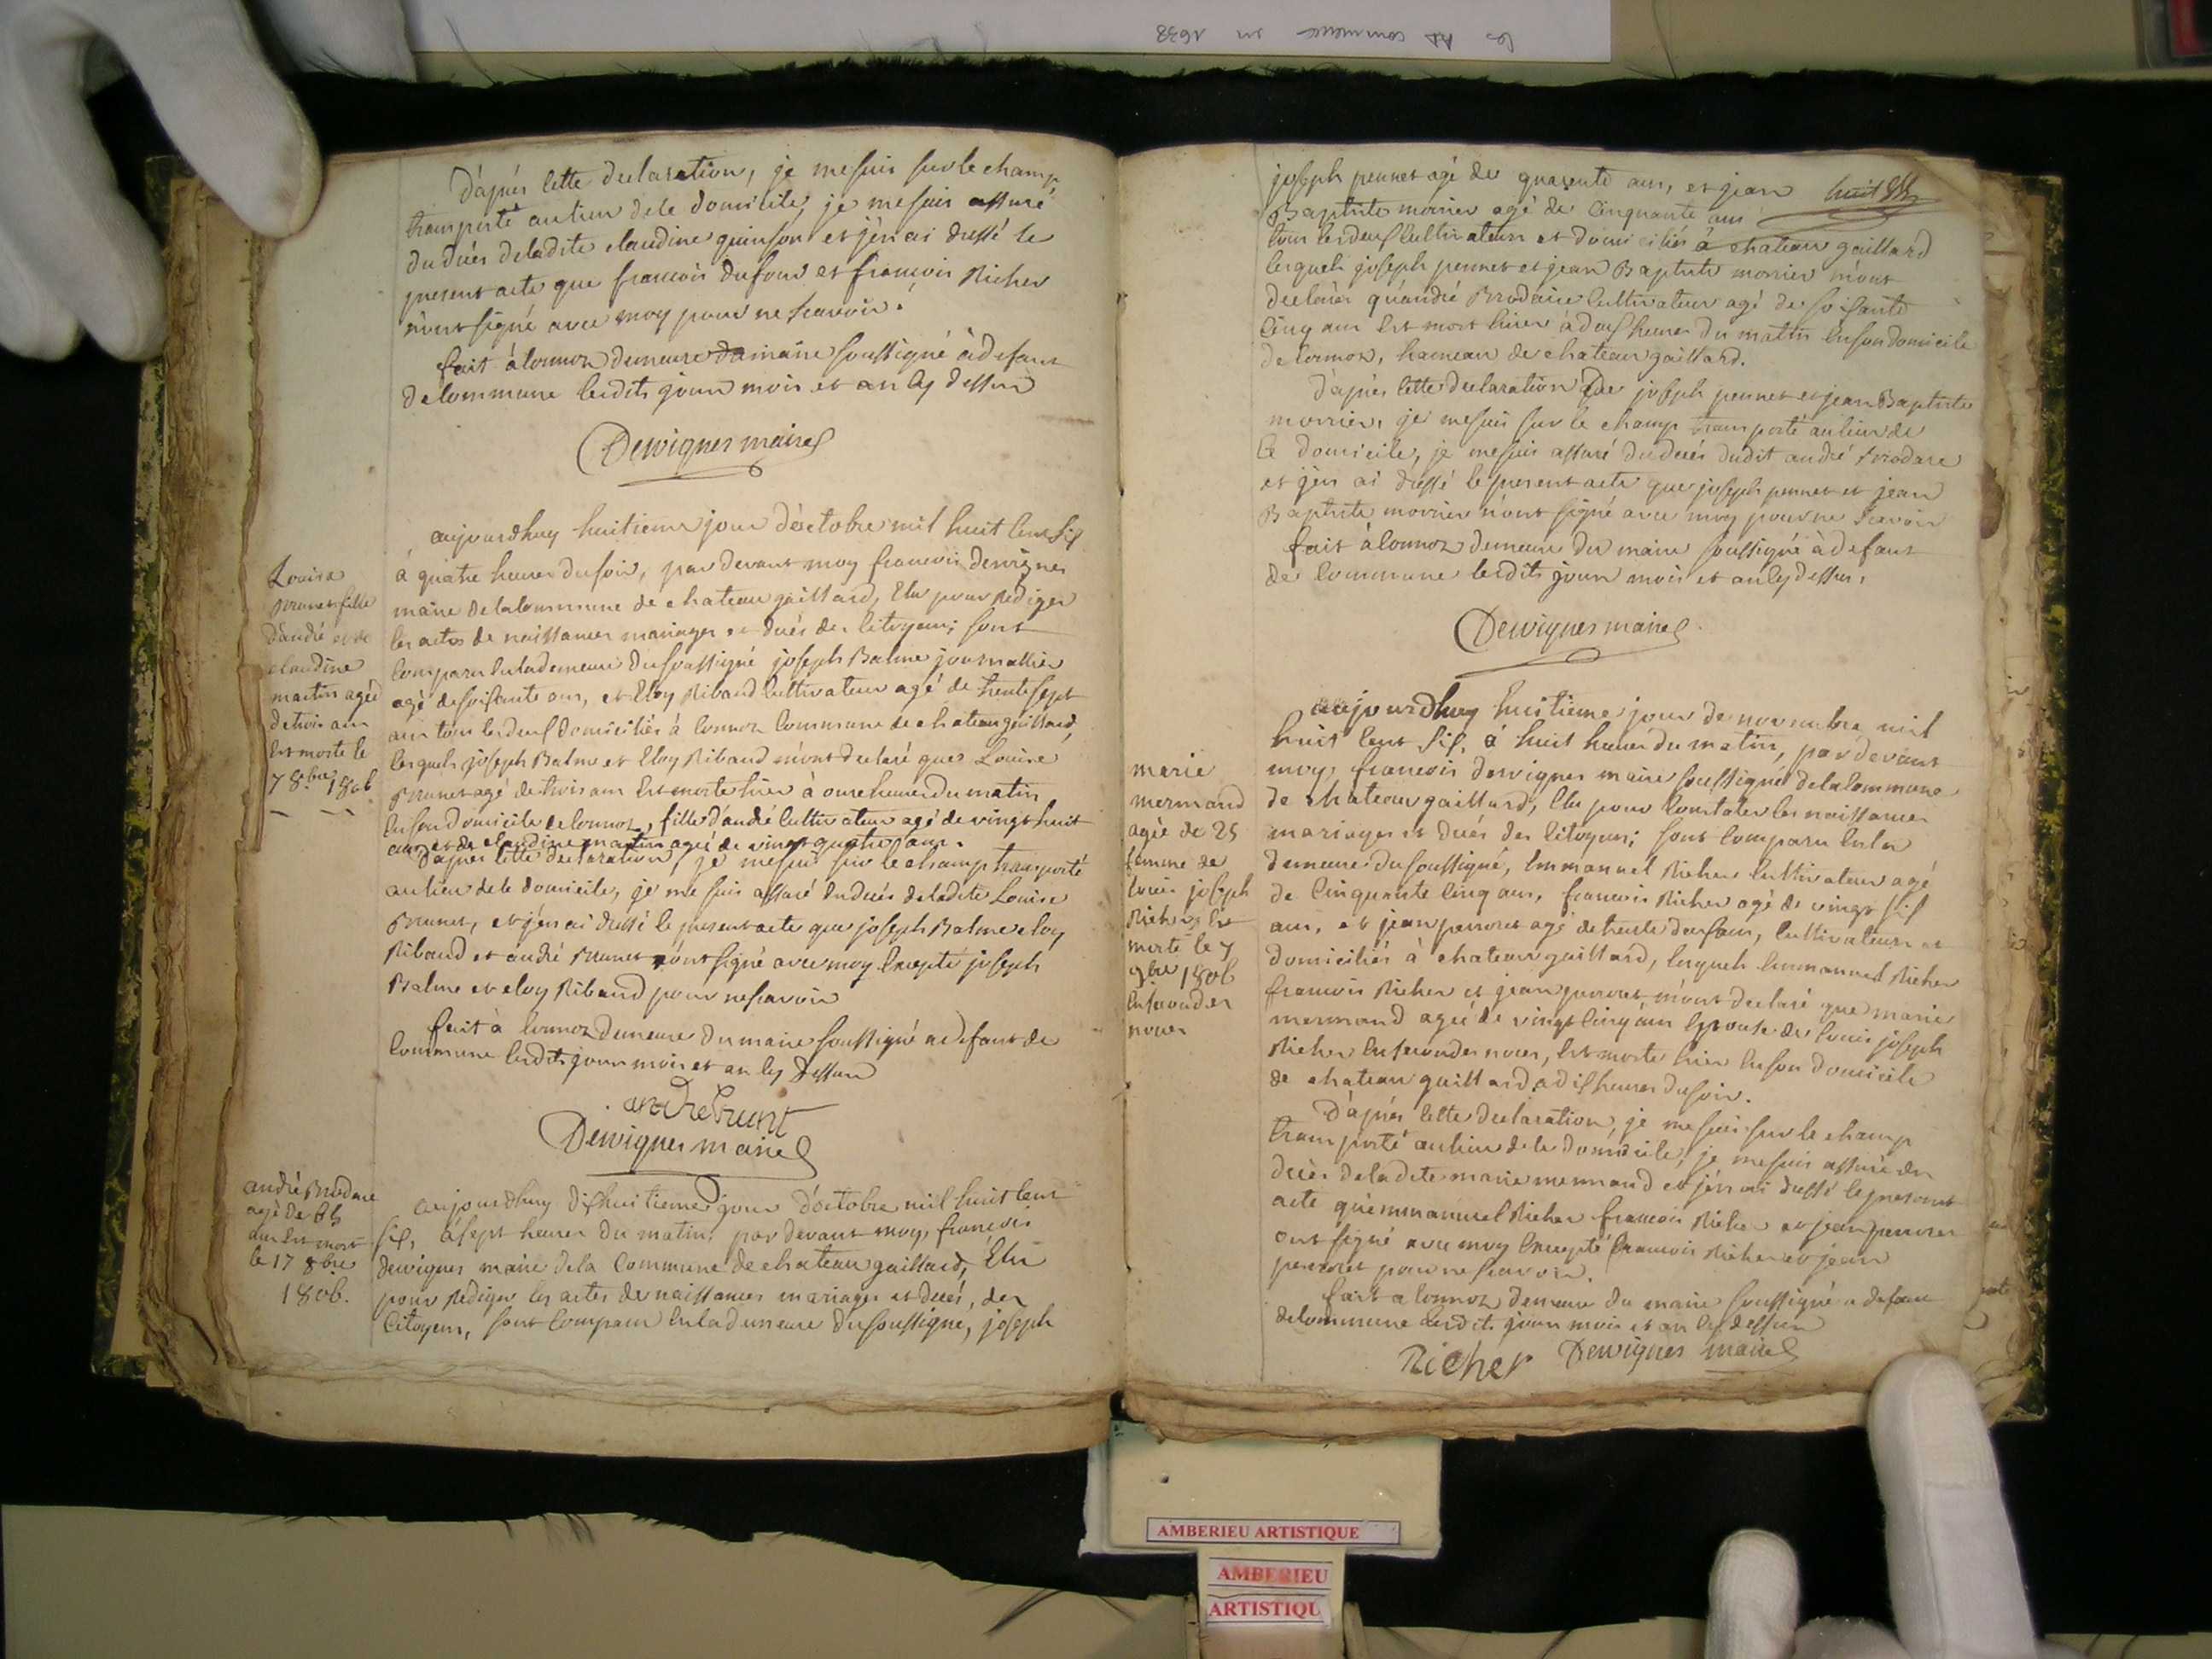 les commence en 1638
D'après cette declaration, je me suis sur le champ
transporté au lieu de ce domicile, je me suis assuré
du decés de ladite claudine guinson et j'en ai dressé le
present acte que françois dufour et françois Richer
n'ont signé avec moy pour ne scavoir.
fait à cormoz demeure du maire soussigné à defaut
de commune lesdits jour mois et an cy dessus
Dervignes maire
Louise
Brunet fille
d'andré et de
claudine
martin agée
de trois ans
est morte le
7 8bre 1806
aujourdhuy huitieme jour d'octobre mil huit cent six
à quatre heures du soir, par devant moy françois dervignes
maire de la commune de chateau gaillard, Elu pour Rediger
les actes de naissances mariages et decés des citoyens; sont
comparu en la demeure du soussigné joseph Balme journallier
agé de soixante ans, et Eloy Ribaud cultivateur agé de trente sept
ans tous les deux domiciliés à cormoz commune de chateau gaillard,
lesquels joseph Balme et Eloy Ribaud m'ont declaré que Louise
Brunet agé de trois ans est morte hier à onze heures du matin
en son domicile de cormoz, fille d'andré cultivateur agé de vingt huit
ans et de claudine martin agée de vingt quatre ans.
D'après cette declaration, je me suis sur le champ transporté
au lieu de ce domicile, je me suis assuré du decés de ladite Louise
Brunet, et j'en ai dressé le present acte que joseph Balme eloy
Ribaud et andré Brunet ont signé avec moy Excepté joseph
Balme et eloy Ribaud pour ne scavoir
fait à cormoz demeure du maire soussigné a defaut de
commune lesdits jour mois et an cy dessus
andre brunt
Dervignes maire
andré Brodare
agé de 65
ans est mort
le 17 8bre
1806.
aujourdhuy dixhuitieme jour d'octobre mil huit cent
six, à sept heures du matin, par devant moy, françois
dervignes maire de la commune de chateau gaillard, Elu
pour Rediger les actes de naissances mariages et decés, des
Citoyens, sont comparu en la demeure du soussigné, joseph
huit
joseph pennet agé de quarente ans, et jean
Baptiste morier agé de cinquante ans
tous les deux cultivateurs et domiciliés à chateau gaillard
lesquels joseph pennet et jean Baptiste morier m'ont
declarés qu'andré Brodare cultivateur agé de soisante
cinq ans est mort hier à deux heures du matin en son domicile
de cormoz, hameau de chateau gaillard.
D'après cette declaration de joseph pennet et jean Baptiste
morrier, je me suis sur le champ transporté au lieu de
ce domicile, je me suis assuré du decés dudit andré Brodare
et j'en ai dressé le present acte que joseph pennet et jean
Baptiste morrier n'ont signé avec moy pour ne scavoir
fait à cormoz demeure du maire soussigné à defaut
de commune lesdits jour mois et an cy dessus.
Dervignes maire
marie
mermand
agée de 25
femme de
louis joseph
Richer, est
morte le 7
9bre 1806
en secondes
noces
aujourdhuy huitieme jour de novembre mil
huit cent six, à huit heures du matin, par devant
moy, françois dervignes maire soussigné de la commune
de chateau gaillard, Elu pour constater les naissances
mariages et decés des citoyens; sont comparu en la
demeure du soussigné, Emmanuel Richer cultivateur agé
de cinquante cinq ans, françois Richer agé de vingt six
ans, et jean perroset agé de trente deux ans, cultivateurs et
domiciliés à chateau gaillard, lesquels emmanuel Richer
françois Richer et jean perroset m'ont declaré que marie
mermand agée de vingt cinq ans Epouse de louis joseph
Richer en secondes noces, est morte hier en son domicile
de chateau gaillard à dix heures du soir.
D'après cette declaration, je me suis sur le champ
transporté au lieu de ce domicile, je me suis assuré du
decés de ladite marie mermand et j'en ai dressé le present
acte qu'emmanuel Richer françois Richer et jean perroset
ont signé avec moy Excepté françois Richer et jean
perroset pour ne scavoir.
fait a cormoz demeure du maire soussigné a defaut
de commune lesdits jour mois et an cy dessus
Richer Dervignes maire
AMBERIEU ARTISTIQUE
AMBERIEU
ARTISTIQU